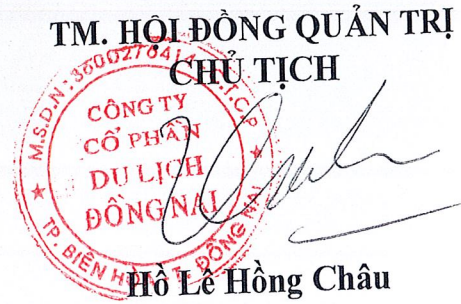 TM. HỘI ĐỒNG QUẢN TRỊ
CHỦ TỊCH
M.S.D.N: 3600276414 - C.T.C.P
CÔNG TY
CỔ PHẦN
DU LỊCH
ĐỒNG NAI
TP. BIÊN HÒA - T. ĐỒNG NAI
Hồ Lê Hồng Châu